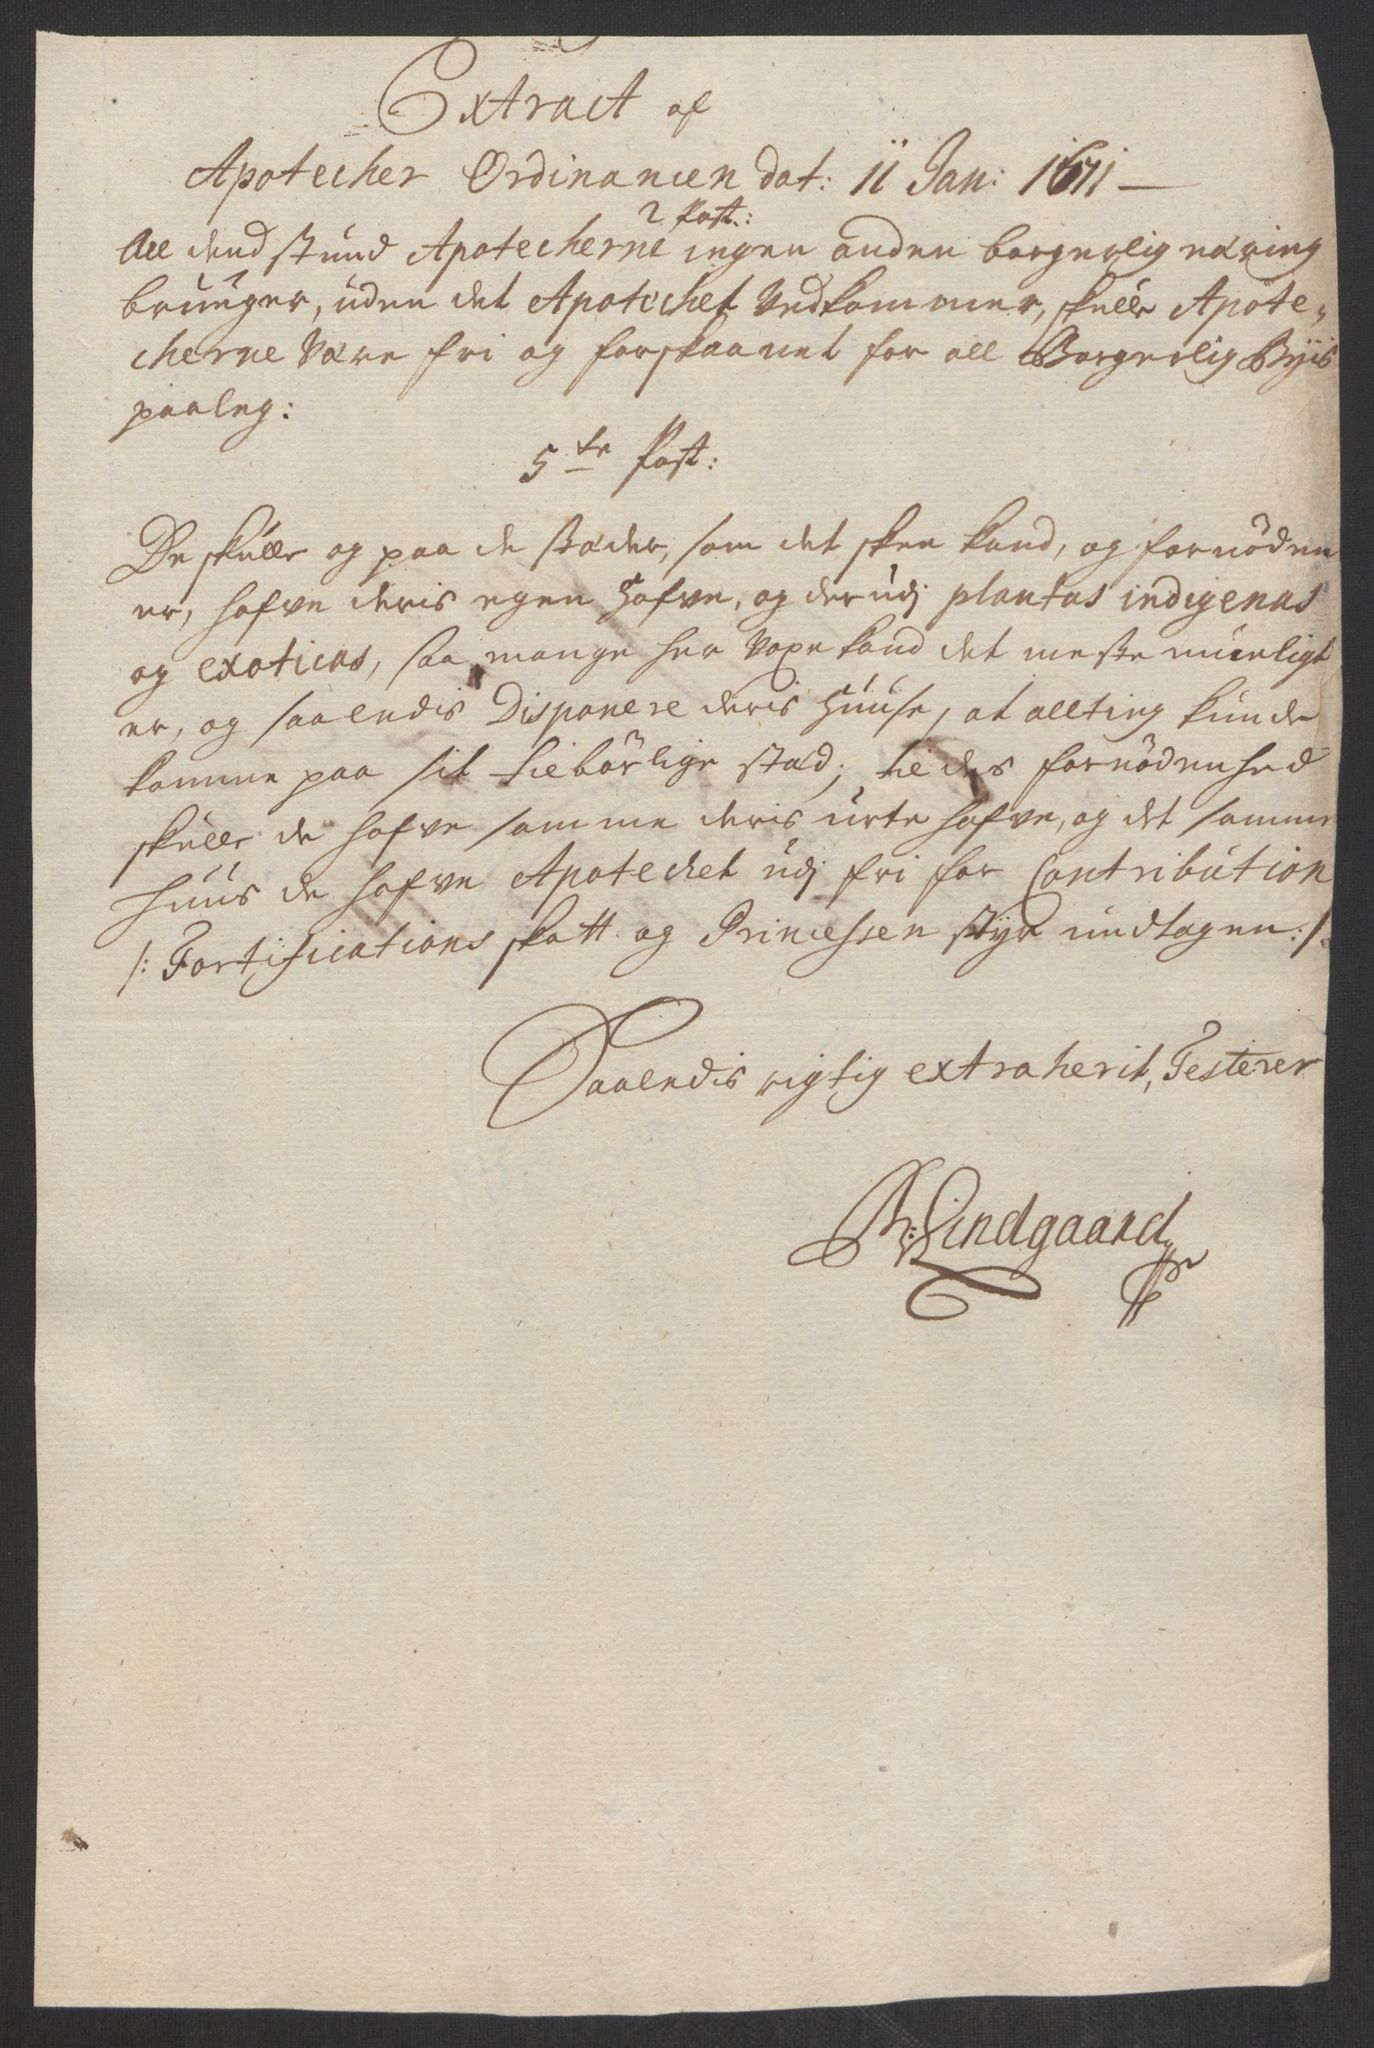 Extract af
Apotecher Ordinancen dat: 11 Jan: 1671 —
2 Post:
All dend stund Apotecherne ingen anden borgerlig næring
bruuger, uden det Apotechet Vedkommer, skulle Apote-
cherne Være fri og forskaanet for all Borgerlig Byis
paaleg:
5te Post:
De skulle og paa de stæder, som det skee kand, og fornöden
er, hafve deris egen Hafve, og der udj plantas indigenas
og exoticas, saa mange her Voxe kand det meste mueligt
er, og saaledis Disponere deris Huuse, at allting kunde
komme paa sit tilbörlige stæd; til des fornödenhed
skulle de hafve samme deris urte hafve, og det samme
Huus de hafve Apotechet udj fri for Contribution
/: Fortifications skatt og Princessen styr undtagen :/
Saaledis rigtig extraherit, Testerer
Lindgaard